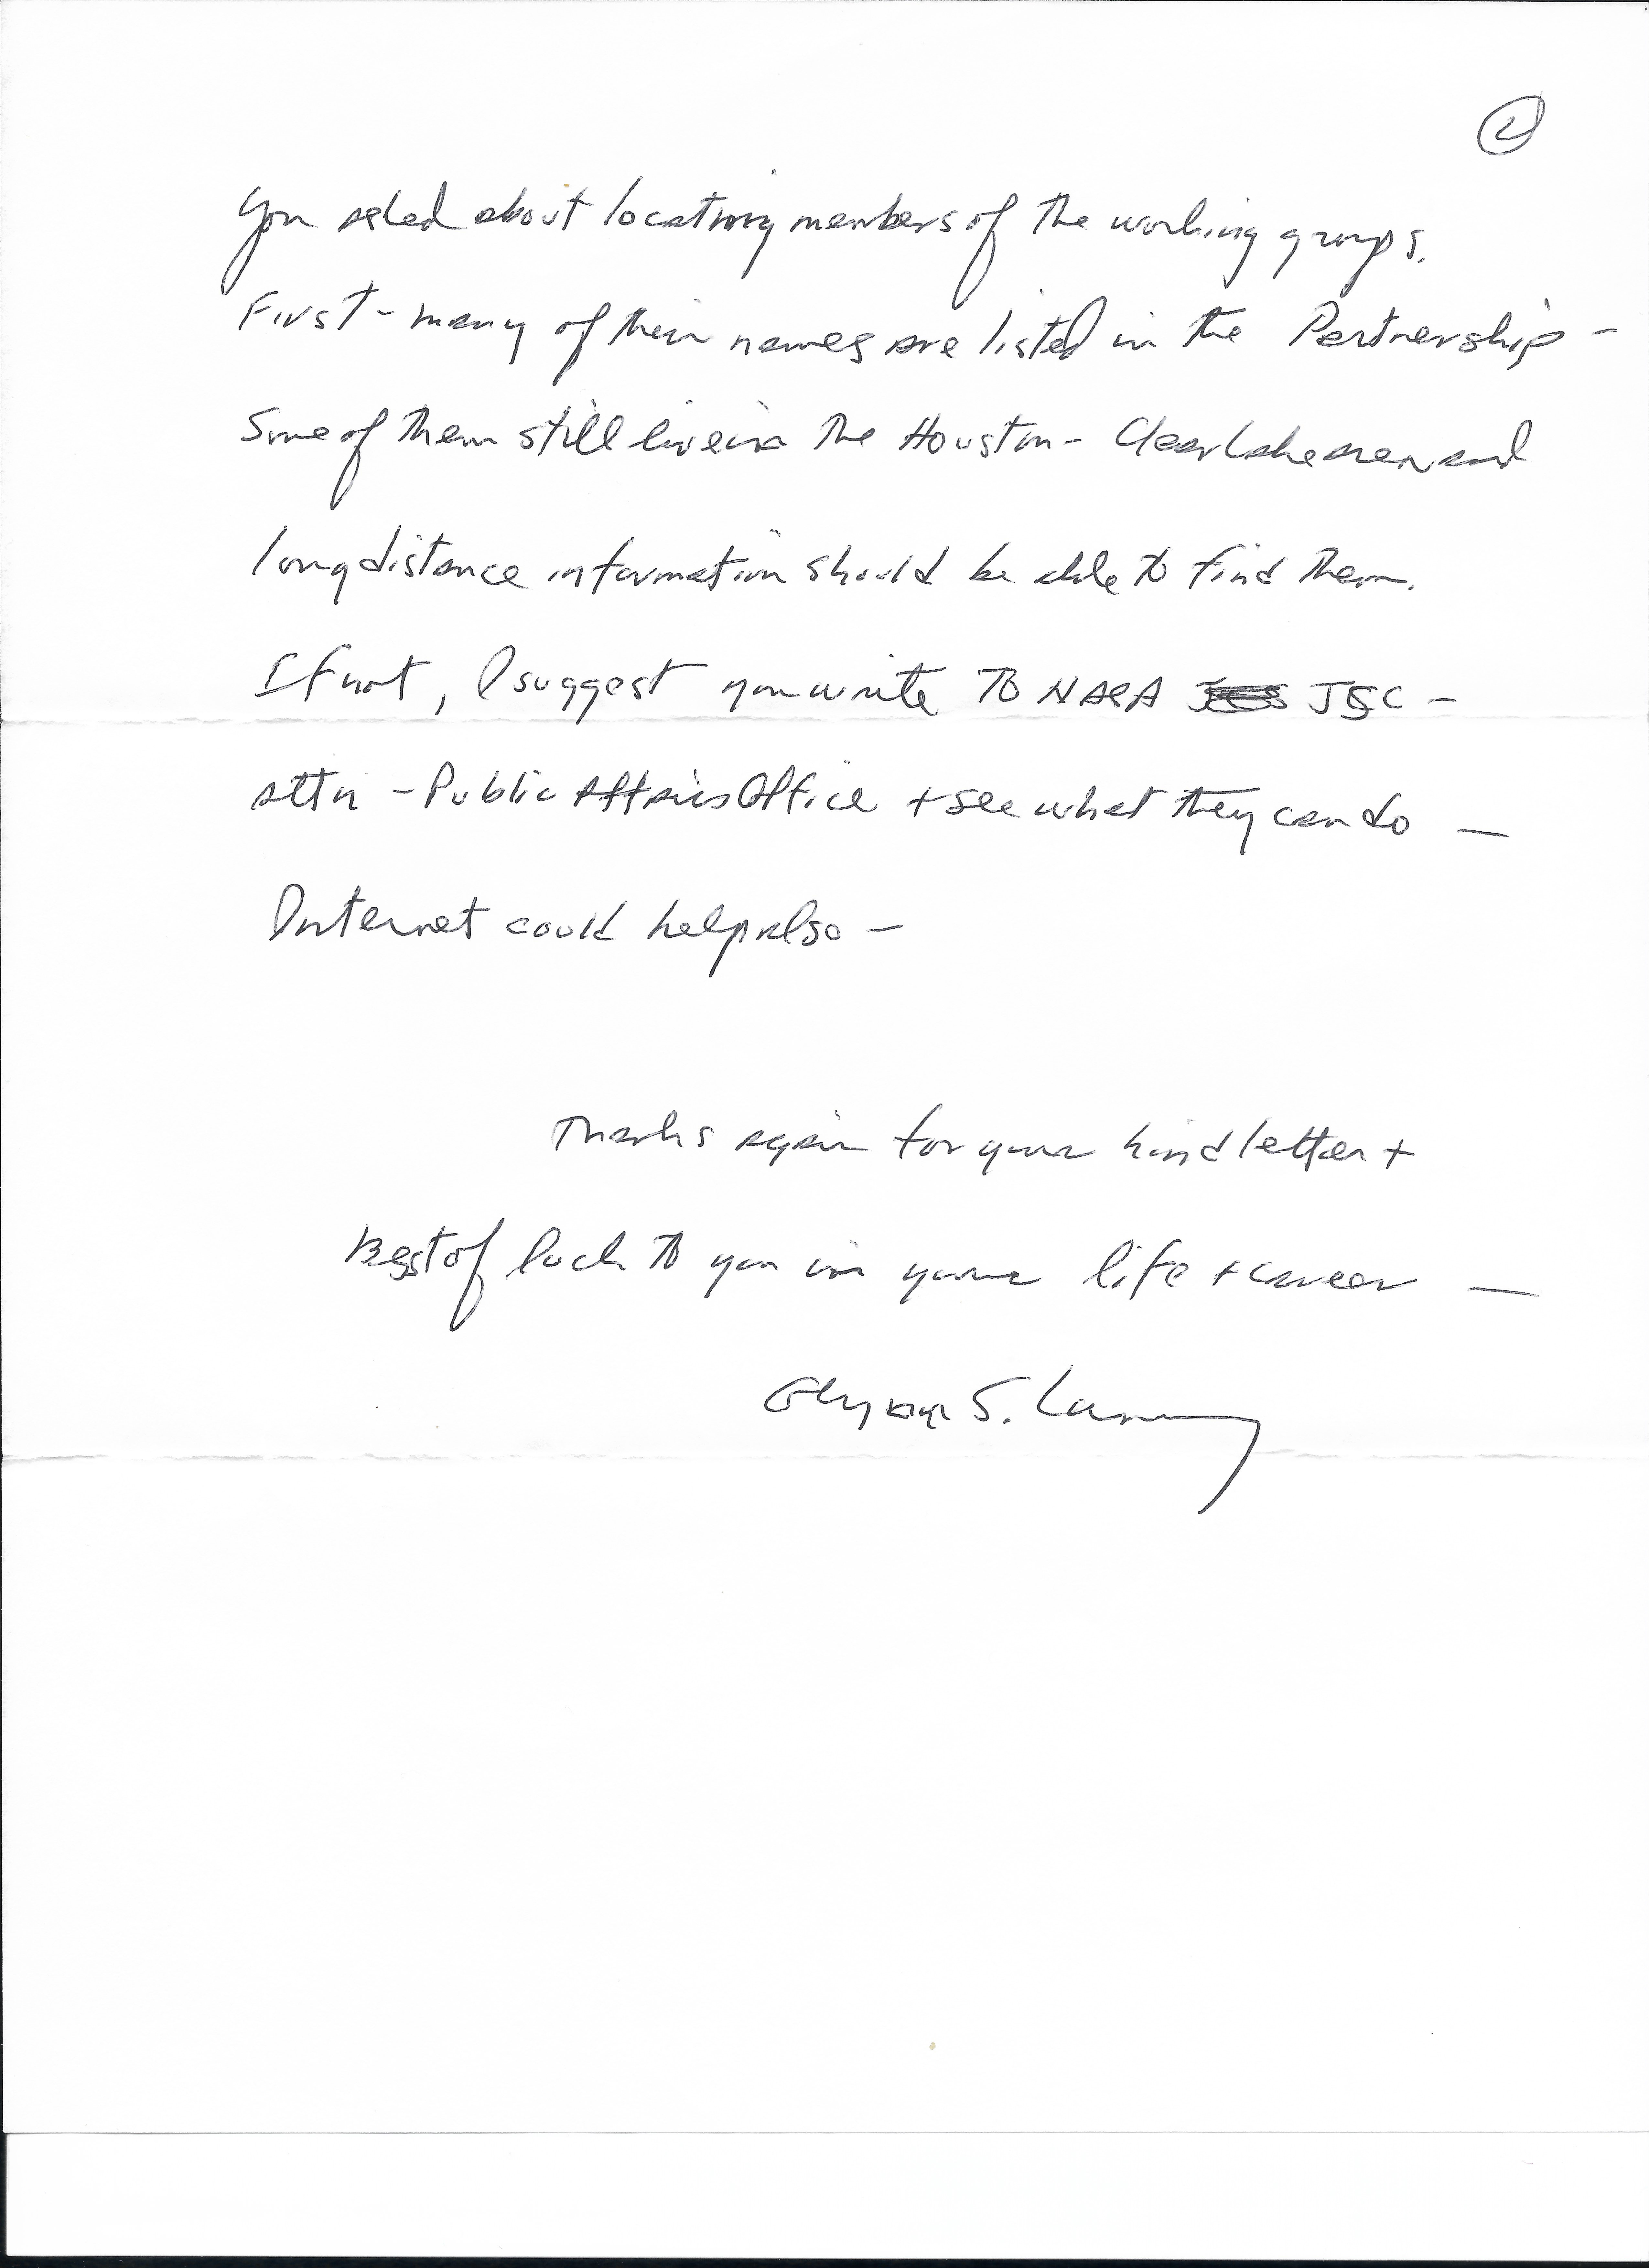 2
You asked about locating members of the working groups.
First - many of their names are listed in the Partnership -
Some of them still live in the Houston - Clear Lake area and
long distance information should be able to find them.
If not, I suggest you write to NASA JSC -
attn - Public Affairs Office + see what they can do -
Internet could help also -
Thanks again for your kind letter +
Best of luck to you in your life + career -
Glynn S. Lunney